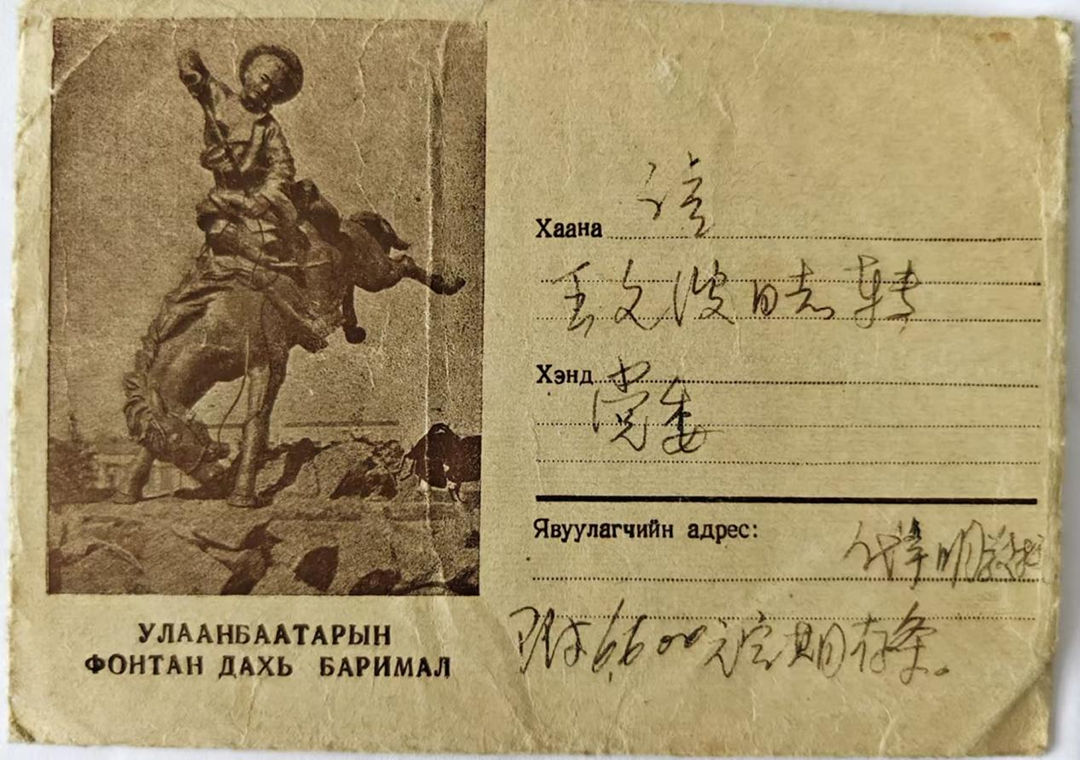 УЛААНБААТАРЫН
ФОНТАН ДАХЬ БАРИМАЛ
Хаана 请
王文波同志转
Хэнд
党委
Явуулагчийн адрес:
附6,600元定期存条。